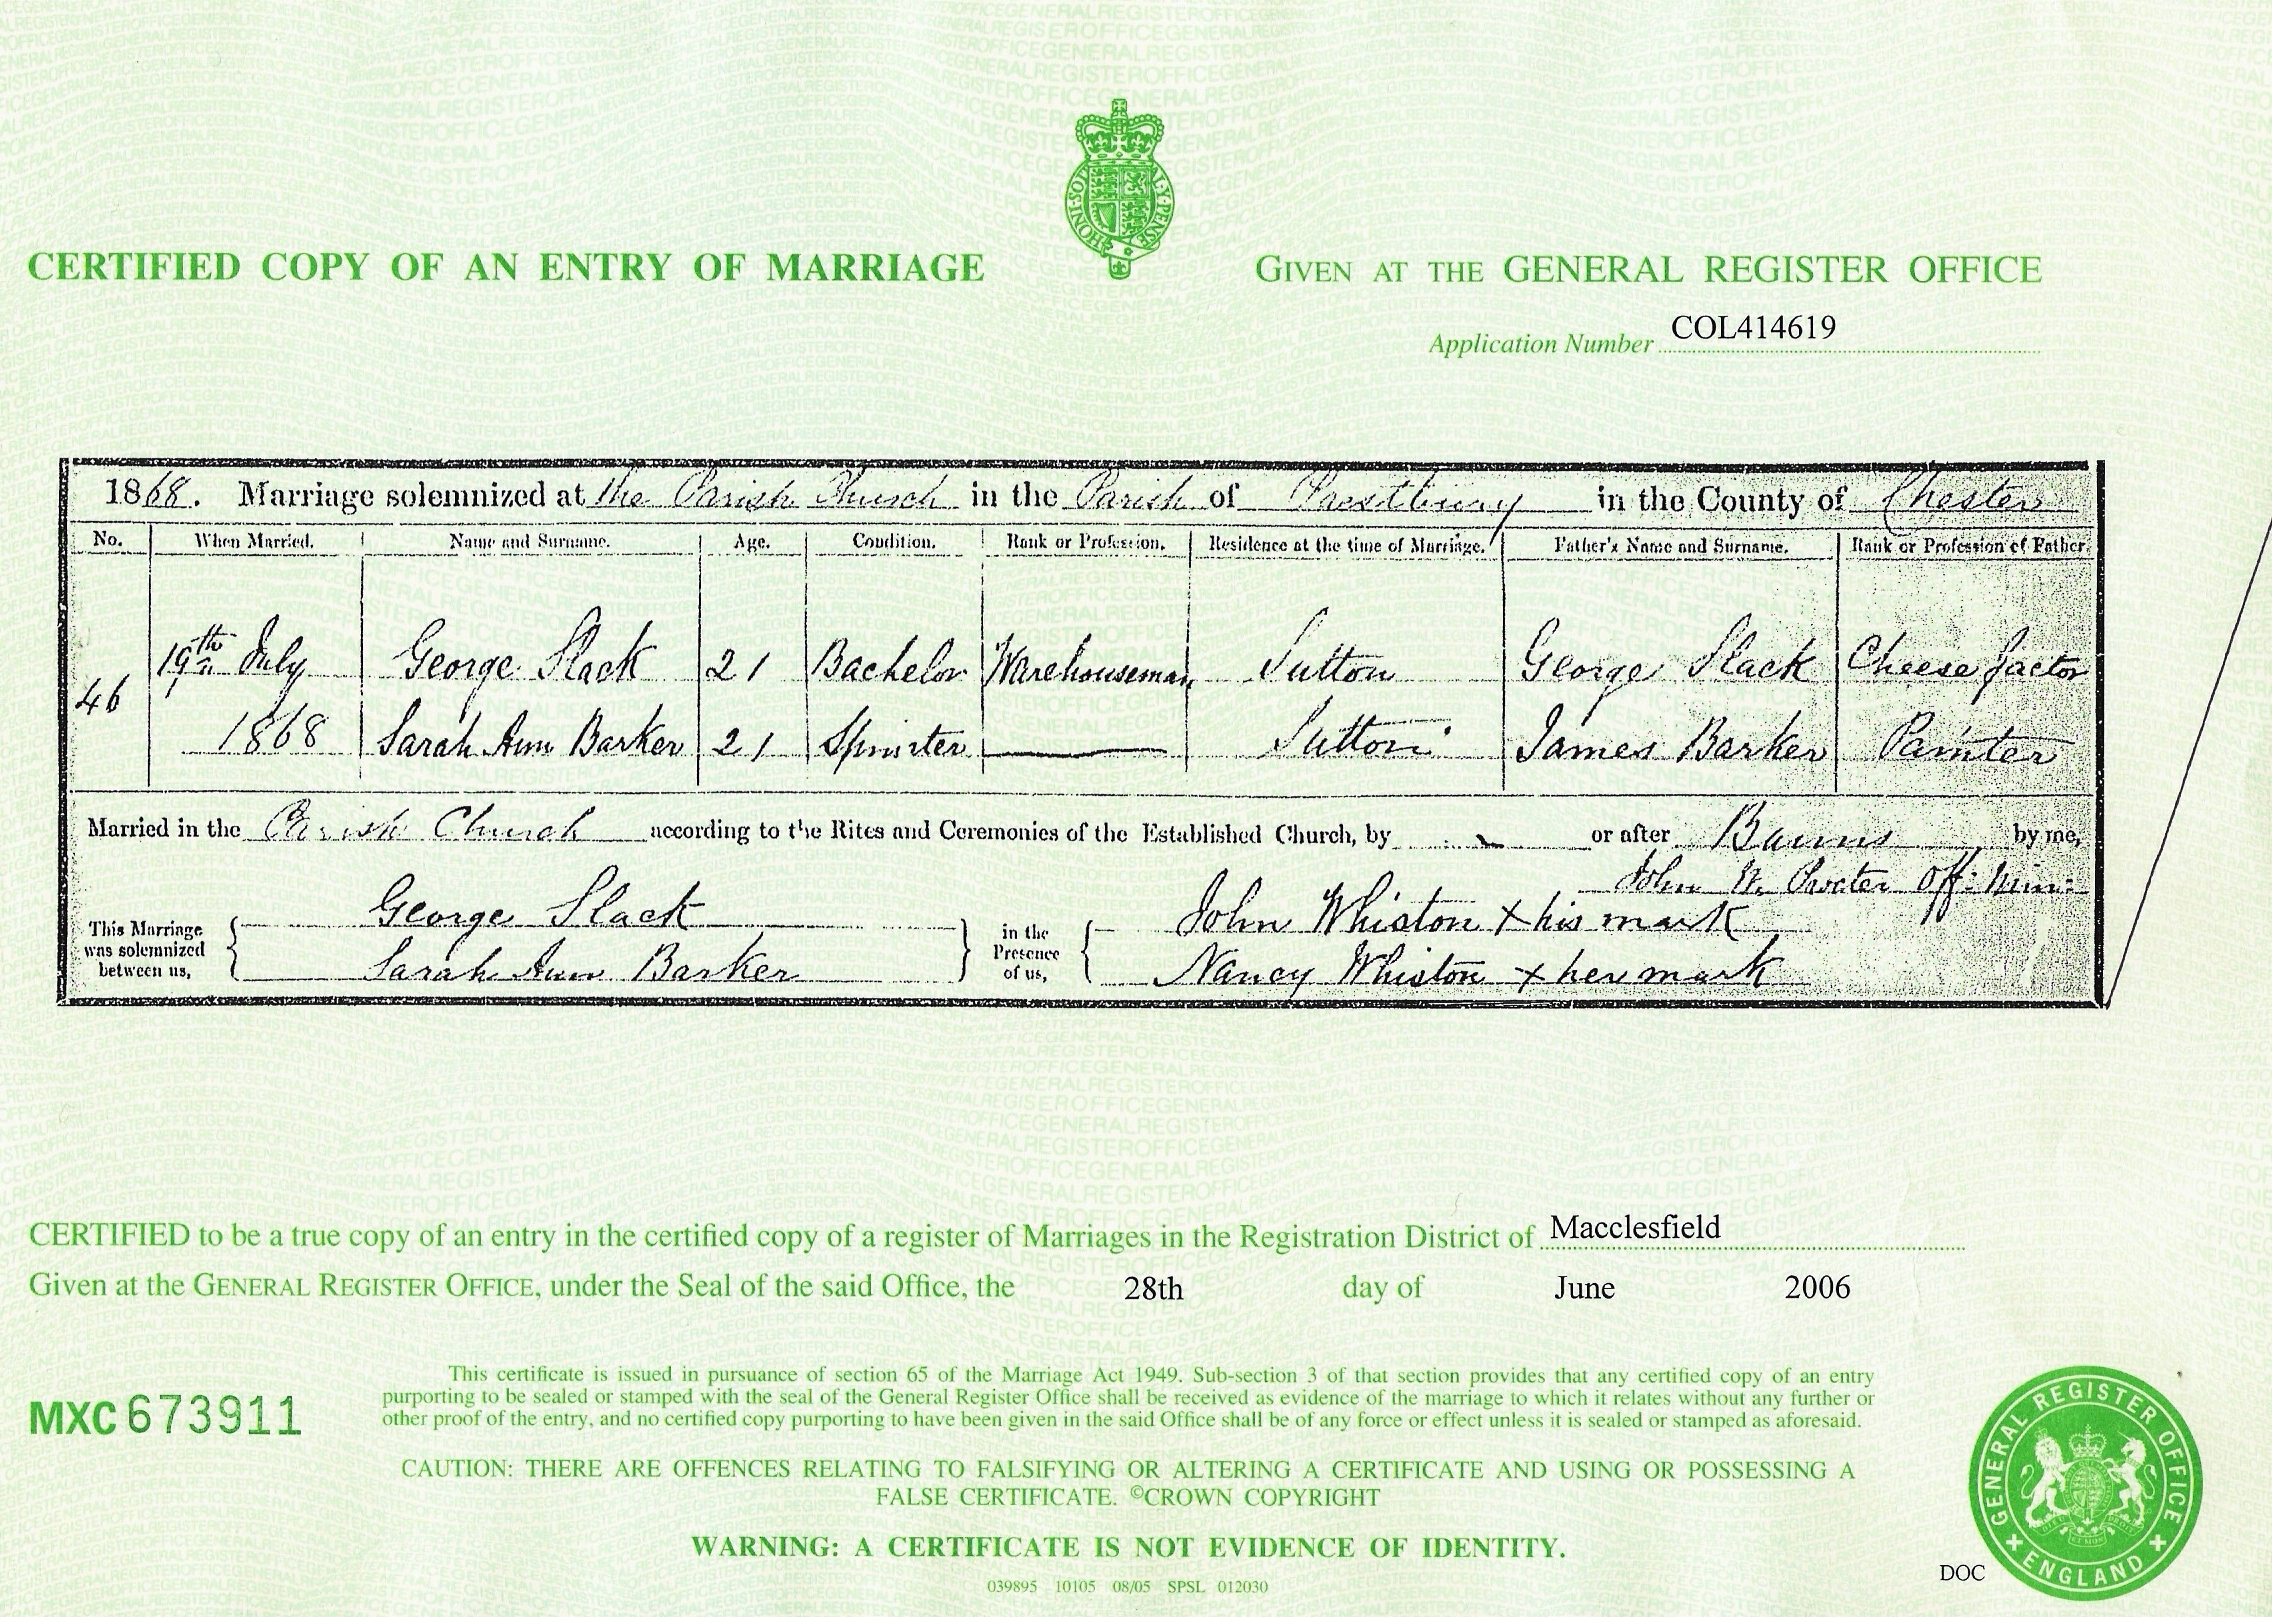 CERTIFIED COPY OF AN ENTRY OF MARRIAGE
GIVEN AT THE GENERAL REGISTER OFFICE
Application Number COL414619
1868. Marriage solemnized at the Parish Church in the Parish of Prestbury in the County of Chester
No. When Married. Name and Surname. Age. Condition. Rank or Profession. Residence at the time of Marriage. Father's Name and Surname. Rank or Profession of Father.
46 19th July George Slack 21 Bachelor Warehouseman Sutton George Slack Cheese factor
1868 Sarah Ann Barker 21 Spinster Sutton James Barker Painter
Married in the Parish Church according to the Rites and Ceremonies of the Established Church, by or after Banns by me,
John W. Procter Off: Min:
This Marriage was solemnized between us,
George Slack
Sarah Ann Barker
in the Presence of us,
John Whiston + his mark
Nancy Whiston + her mark
CERTIFIED to be a true copy of an entry in the certified copy of a register of Marriages in the Registration District of Macclesfield
Given at the GENERAL REGISTER OFFICE, under the Seal of the said Office, the 28th day of June 2006
MXC 673911
This certificate is issued in pursuance of section 65 of the Marriage Act 1949. Sub-section 3 of that section provides that any certified copy of an entry
purporting to be sealed or stamped with the seal of the General Register Office shall be received as evidence of the marriage to which it relates without any further or
other proof of the entry, and no certified copy purporting to have been given in the said Office shall be of any force or effect unless it is sealed or stamped as aforesaid.
CAUTION: THERE ARE OFFENCES RELATING TO FALSIFYING OR ALTERING A CERTIFICATE AND USING OR POSSESSING A
FALSE CERTIFICATE. ©CROWN COPYRIGHT
WARNING: A CERTIFICATE IS NOT EVIDENCE OF IDENTITY.
039895 10105 08/05 SPSL 012030
DOC
GENERAL REGISTER OFFICE
ENGLAND